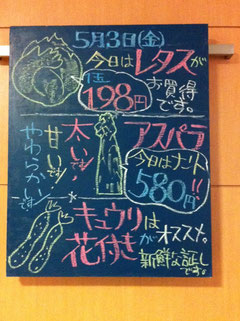 5月3日(金)
今日はレタスが
1玉
198円
お買得
です。
アスパラ
今日はナント
580円!!
太いです!
甘いです!
やわらかいです!
キュウリは
花付きがオススメ。
新鮮な証し
です。